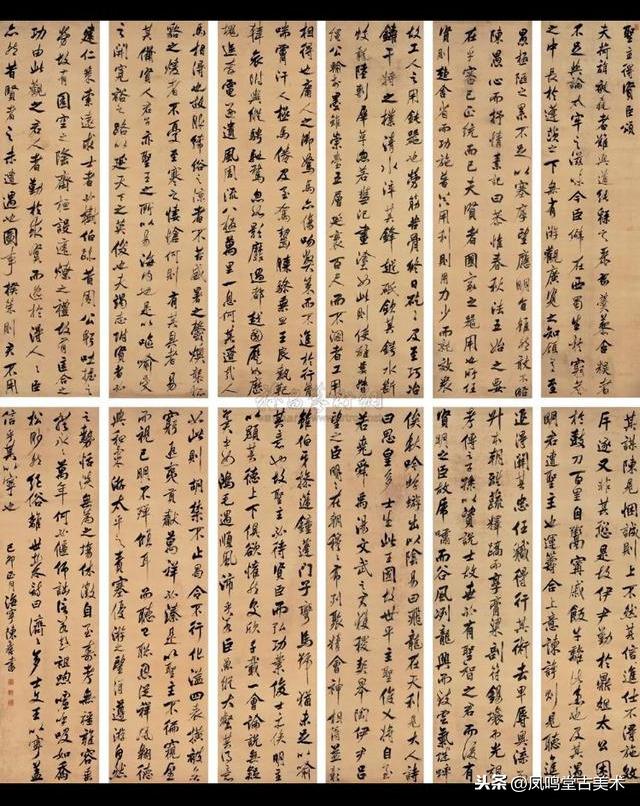 聖主得賢臣頌
夫荷旃被毳者難與道純綿之麗密羹藜含糗者
不足與論太牢之滋味今臣僻在西蜀生於窮巷
之中長於蓬茨之下無有游觀廣覽之知顧有至
愚極陋之累不足以塞厚望應明旨雖然敢不略
陳愚心而抒情素記曰恭惟春秋法五始之要
在乎審己正統而已夫賢者國家之器用也所任
賢則趨舍省而功施普器用利則用力少而就效衆
故工人之用鈍器也勞筋苦骨終日矻矻及至巧冶
鑄干將之樸清水淬其鋒越砥斂其鍔水斷
蛟龍陸剸犀革忽若彗汜畫塗如此則使離婁督
繩公輸削墨雖崇臺五層延袤百丈而不溷者工用
相得也庸人之御駑馬亦傷吻敝策而不進於行胸
喘膚汗人極馬倦及至駕齧膝驂乘旦王良執靶
韓哀附輿縱騁馳騖忽如影靡過都越國蹶如歷
塊追奔電逐遺風周流八極萬里一息何其遼哉人
馬相得也故服絺綌之涼者不苦盛暑之鬱燠襲狐
貉之煖者不憂至寒之悽愴何則有其具者易
其備賢人君子亦聖王之所以易海內也是以嘔喻受
之開寬裕之路以延天下之英俊也夫竭志附賢者必
建仁策索遠求士者必樹伯跡昔周公躬吐握之
勞故有圄空之隆齊桓設庭燎之禮故有匡合之
功由此觀之君人者勤於求賢而逸於得人人臣
亦然昔賢者之未遭遇也圖事揆策則君不用
其謀陳見悃誠則上不然其信進仕不得施效
斥逐又非其愆是故伊尹勤於鼎俎太公困
於鼓刀百里自鬻甯戚飯牛離此患也及其遇
明君遭聖主也運籌合上意諫諍則見聽進
退得關其忠任職得行其術去卑辱奧渫而
升本朝離疏釋蹻而享膏粱剖符錫壤而光祖
考傳之子孫以資說士故世必有聖知之君而後有
賢明之臣故虎嘯而谷風冽龍興而致雲氣蟋蟀
俟秋唫蜉蝣出以陰易曰飛龍在天利見大人詩
曰思皇多士生此王國故世平主聖俊乂將自至
若堯舜禹湯文武之君獲稷契皋陶伊尹呂
望之臣明明在朝穆穆布列聚精會神相得益章
雖伯牙操遞鍾逢門子彎烏號猶未足以喻
其意也故聖主必待賢臣而弘功業俊士亦俟明主
以顯其德上下俱欲懽然交欣千載一會論說無疑
翼乎如鴻毛遇順風沛乎若巨魚縱大壑其得意
如此則胡禁不止曷令不行化溢四表橫被無
窮遐夷貢獻萬祥必溱是以聖主不徧窺望
而視已明不殫傾耳而聽已聰恩從祥風翱德
與和氣游太平之責塞優游之望得遵游自然
之勢恬淡無為之場休徵自至壽考無疆雍容垂
拱永永萬年何必偃仰詘信若彭祖呴噓呼吸如喬
松眇然絕俗離世哉詩曰濟濟多士文王以寧蓋
信乎其以寧也
己卯正月海寧陳書
头条@凤鸣堂古美术